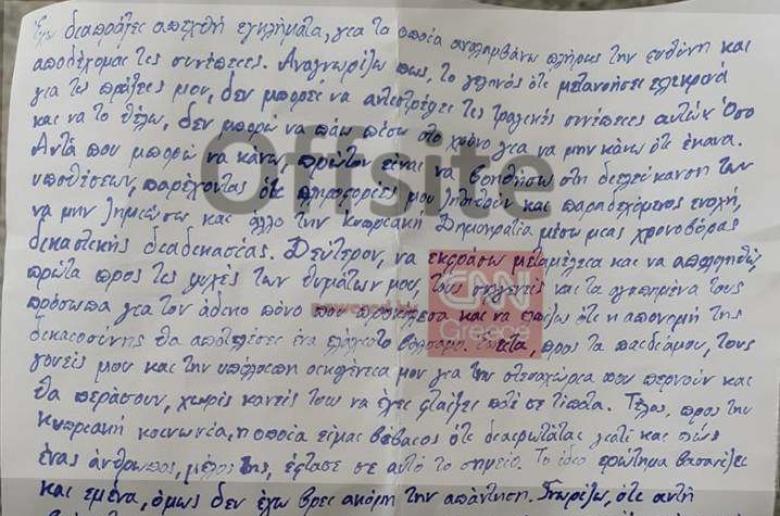 Έχω διαπράξει απεχθή εγκλήματα, για τα οποία αναλαμβάνω πλήρως την ευθύνη και
αποδέχομαι τις συνέπειες. Αναγνωρίζω πως, το γεγονός ότι μετανόησα ειλικρινά
για τις πράξεις μου, δεν μπορεί να αντιστρέψει τις τραγικές συνέπειες αυτών. Όσο
και να το θέλω, δεν μπορώ να πάω πίσω στο χρόνο για να μην κάνω ότι έκανα.
Αυτά που μπορώ να κάνω, πρώτον είναι να βοηθήσω στη διελεύκανση των
υποθέσεων, παρέχοντας ότι πληροφορίες μου ζητηθούν και παραδεχόμενος ενοχή,
να μην ζημιώσω και άλλο την Κυπριακή Δημοκρατία μέσω μιας χρονοβόρας
δικαστικής διαδικασίας. Δεύτερον, να εκφράσω μεταμέλεια και να απολογηθώ,
πρώτα προς τις ψυχές των θυμάτων μου, τους συγγενείς και τα αγαπημένα τους
πρόσωπα για τον άδικο πόνο που προκάλεσα και να ελπίζω ότι η απονομή της
δικαιοσύνης θα αποτελέσει ένα ελάχιστο βάλσαμο. Έπειτα, προς τα παιδιά μου, τους
γονείς μου και την υπόλοιπη οικογένεια μου για την στεναχώρια που περνούν και
θα περάσουν, χωρίς κανείς τους να έχει φταίξει ποτέ σε τίποτα. Τέλος, προς την
Κυπριακή κοινωνία, η οποία είμαι βέβαιος ότι διερωτάται γιατί και πώς
ένας άνθρωπος, μέλος της, έφτασε σε αυτό το σημείο. Το ίδιο ερώτημα βασανίζει
και εμένα, όμως δεν έχω βρει ακόμη την απάντηση. Γνωρίζω, ότι αυτή
Offsite
powered by
CNN
Greece